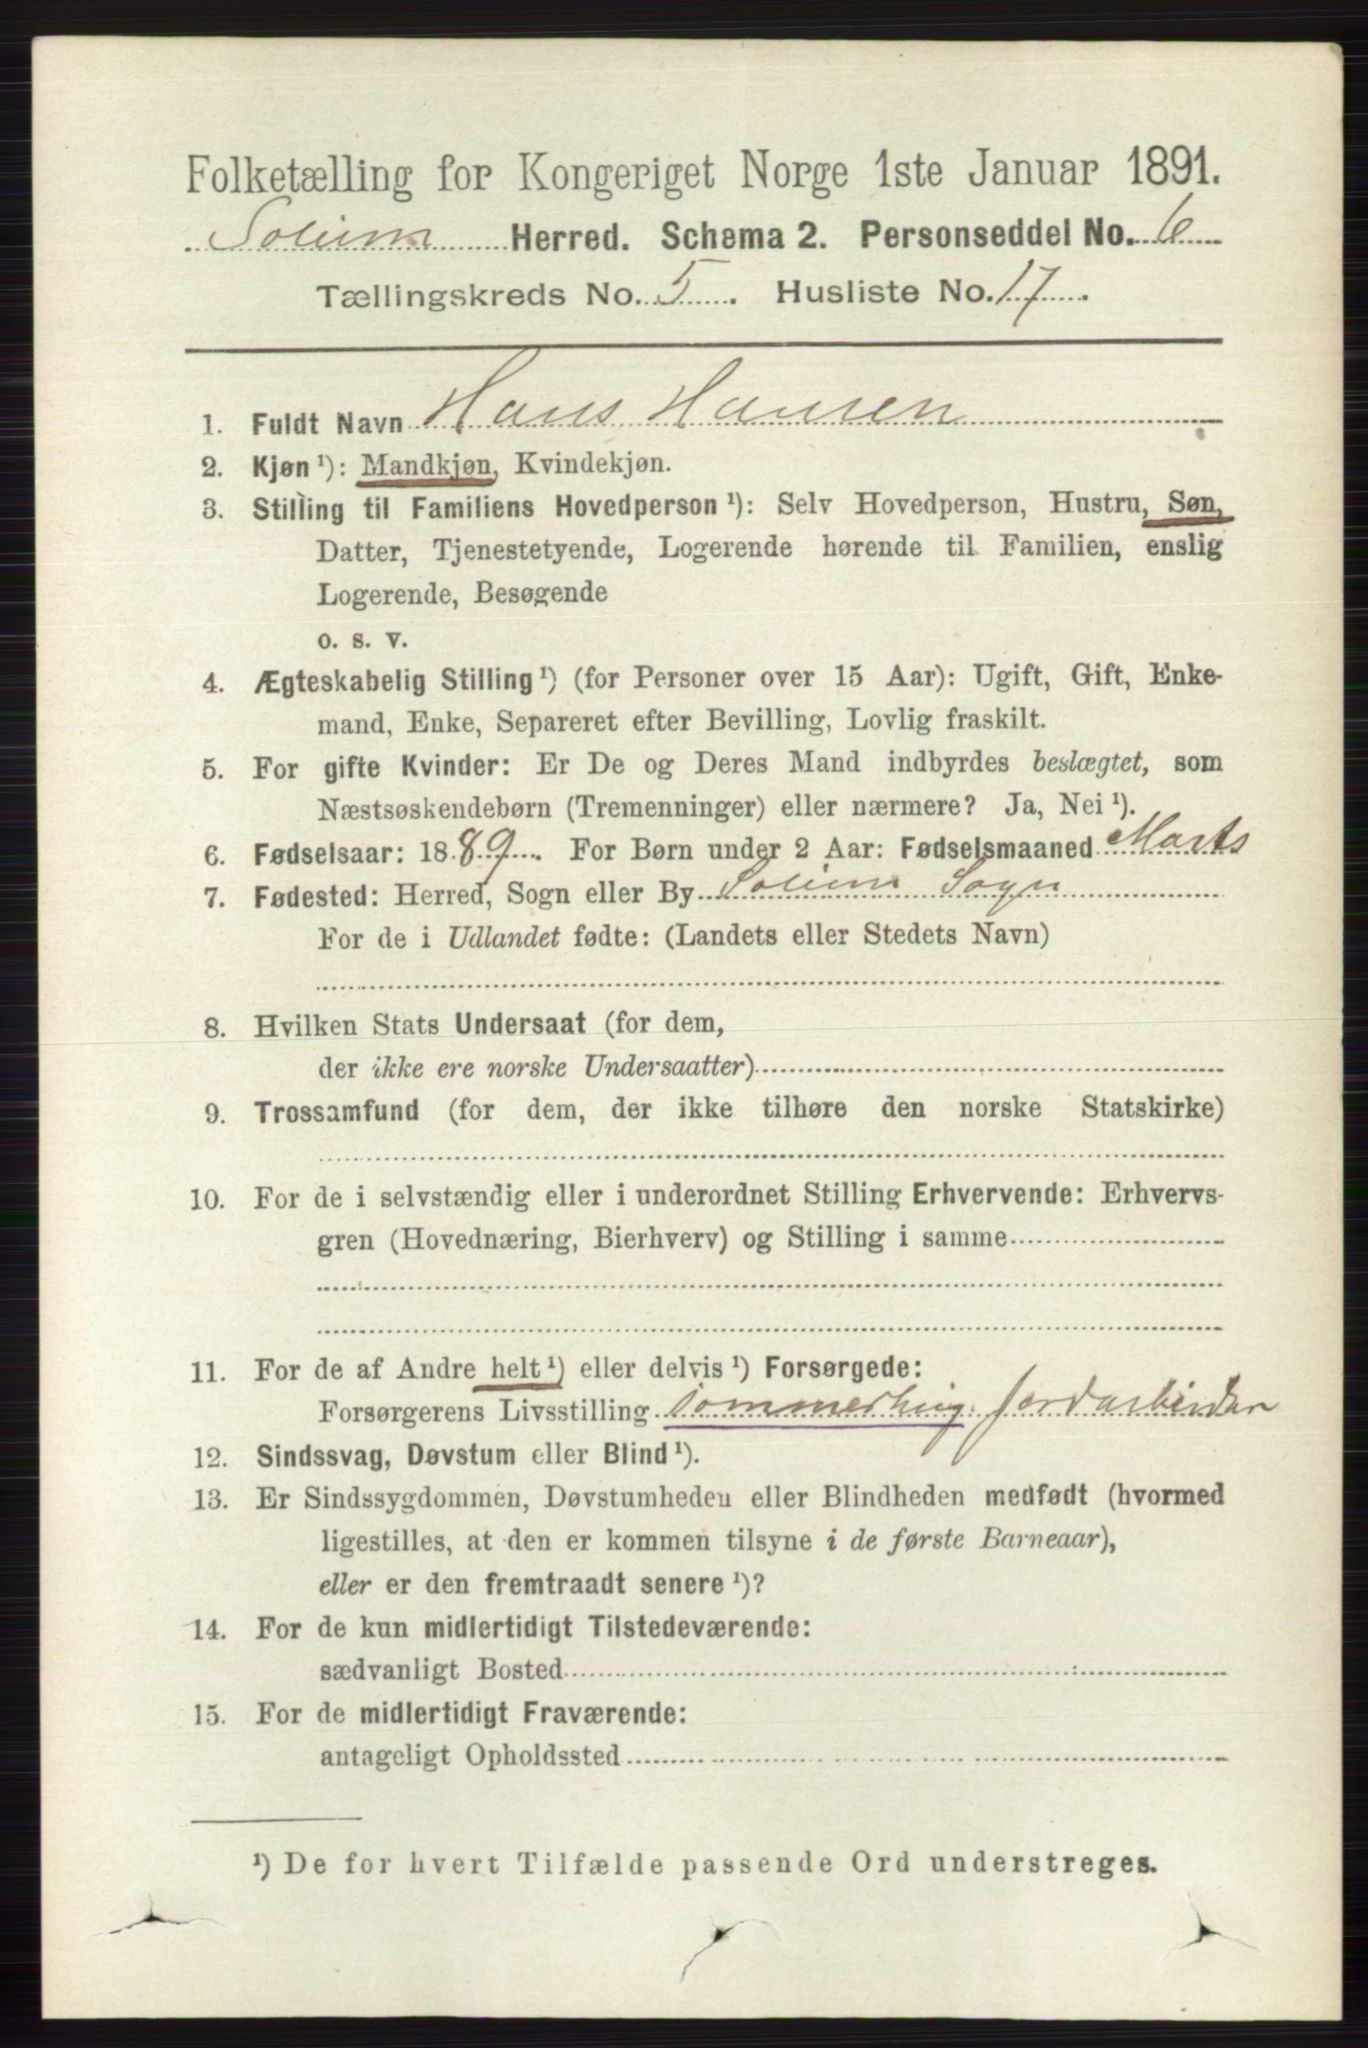 Folketælling for Kongeriget Norge 1ste Januar 1891.
Solum Herred. Schema 2. Personseddel No. 6
Tællingskreds No. 5. Husliste No. 17.
1. Fuldt Navn Hans Hansen
2. Kjøn ¹): Mandkjøn, Kvindekjøn.
3. Stilling til Familiens Hovedperson ¹): Selv Hovedperson, Hustru, Søn,
Datter, Tjenestetyende, Logerende hørende til Familien, enslig
Logerende, Besøgende
o. s. v.
4. Ægteskabelig Stilling ¹) (for Personer over 15 Aar): Ugift, Gift, Enke-
mand, Enke, Separeret efter Bevilling, Lovlig fraskilt.
5. For gifte Kvinder: Er De og Deres Mand indbyrdes beslægtet, som
Næstsøskendebørn (Tremenninger) eller nærmere? Ja, Nei ¹).
6. Fødselsaar: 1889. For Børn under 2 Aar: Fødselsmaaned Marts
7. Fødested: Herred, Sogn eller By Solum Sogn
For de i Udlandet fødte: (Landets eller Stedets Navn)
8. Hvilken Stats Undersaat (for dem,
der ikke ere norske Undersaatter)
9. Trossamfund (for dem, der ikke tilhøre den norske Statskirke)
10. For de i selvstændig eller i underordnet Stilling Erhvervende: Erhvervs-
gren (Hovednæring, Bierhverv) og Stilling i samme
11. For de af Andre helt ¹) eller delvis ¹) Forsørgede:
Forsørgerens Livsstilling Jordarbeider
12. Sindssvag, Døvstum eller Blind ¹).
13. Er Sindssygdommen, Døvstumheden eller Blindheden medfødt (hvormed
ligestilles, at den er kommen tilsyne i de første Barneaar),
eller er den fremtraadt senere ¹)?
14. For de kun midlertidigt Tilstedeværende:
sædvanligt Bosted
15. For de midlertidigt Fraværende:
antageligt Opholdssted
¹) De for hvert Tilfælde passende Ord understreges.